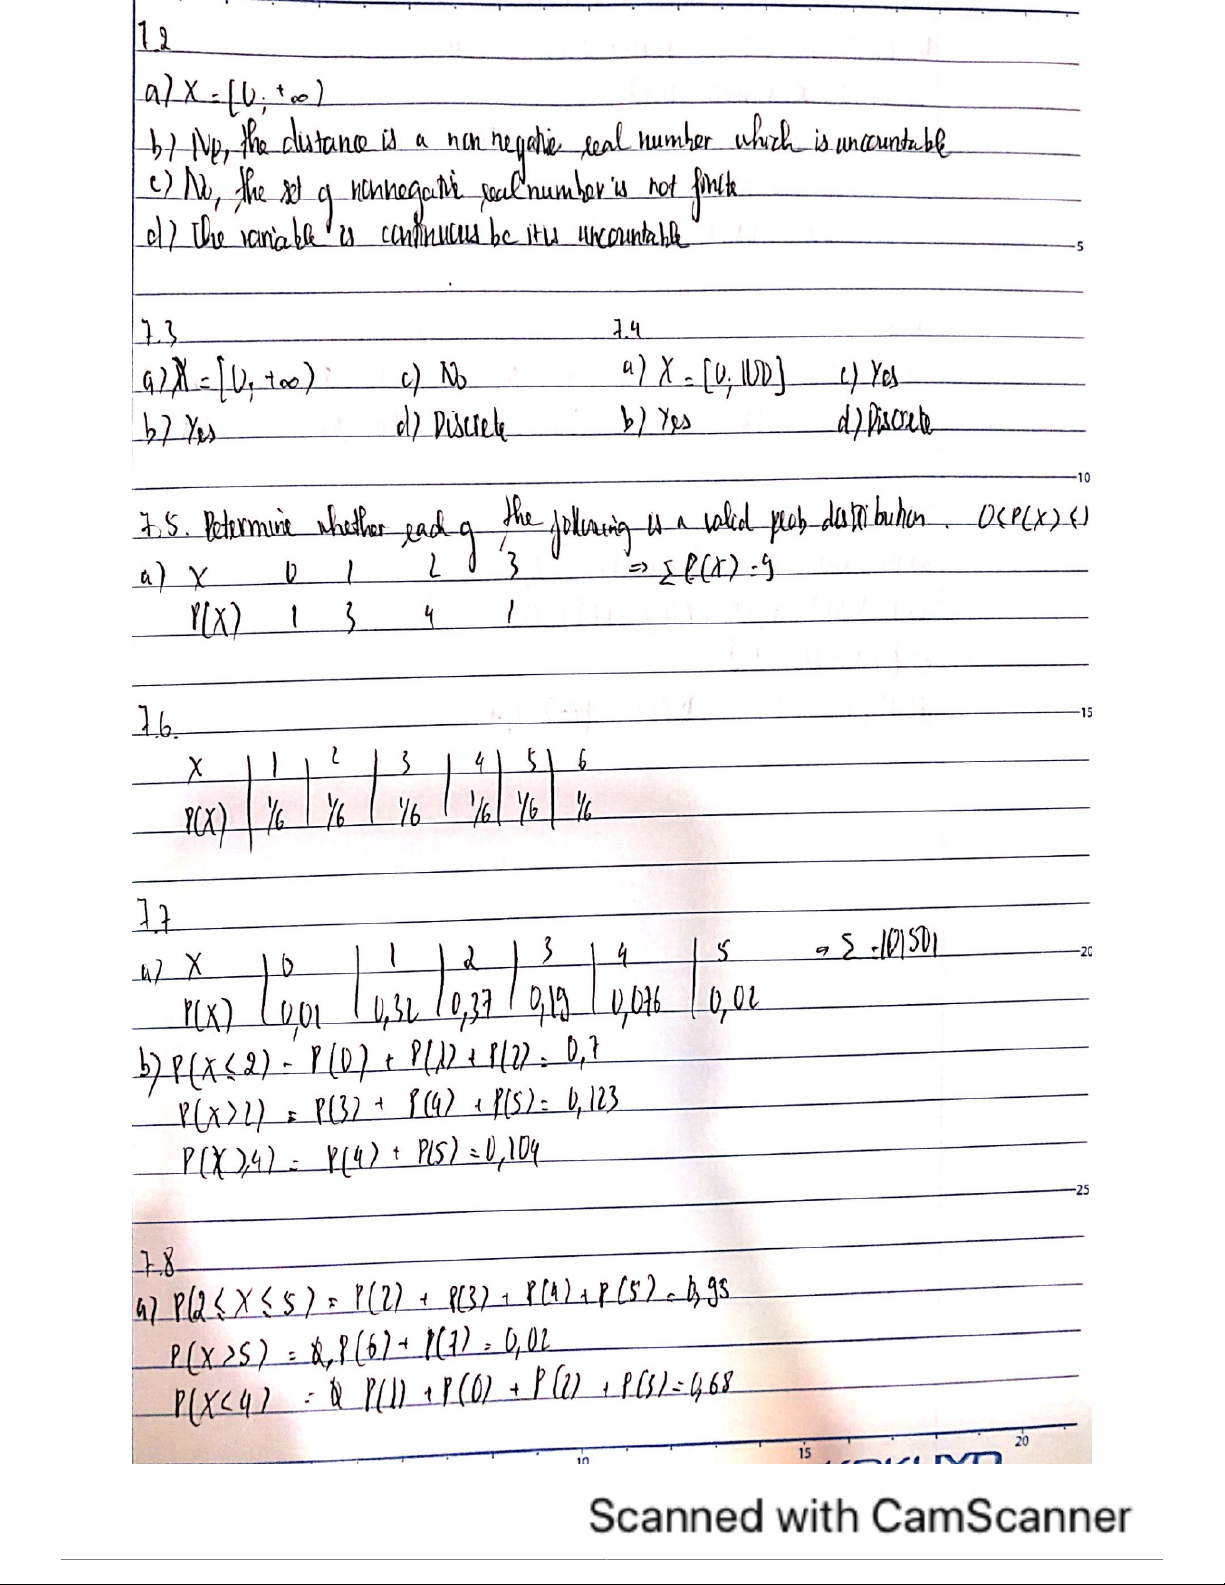 7.2
a) X = [0; +∞)
b) No, the distance is a non negative real number which is uncountable
c) No, the set of nonnegative real number is not finite
d) The variable is continuous bc it is uncountable
5
7.3
a) X = [0; +∞) c) No
b) Yes d) Discrete
7.4
a) X = [0; 100] c) Yes
b) Yes d) Discrete
10
7.5. Determine whether each of the following is a valid prob distribution. 0<P(X)<1
a) X 0 1 2 3 => Σ P(X) = 9
P(X) 1 3 4 1
7.6. 15
X 1 2 3 4 5 6
P(X) 1/6 1/6 1/6 1/6 1/6 1/6
7.7
a) X 0 1 2 3 4 5 20
P(X) 0,01 0,32 0,37 0,19 0,076 0,02
b) P(X≤2) = P(0) + P(1) + P(2) = 0,7
P(X>2) = P(3) + P(4) + P(5) = 0,123
P(X≥4) = P(4) + P(5) = 0,104
25
7.8
a) P(2≤X≤5) = P(2) + P(3) + P(4) + P(5) = 0,95
P(X>5) = P(6) + P(7) = 0,02
P(X<4) = P(1) + P(0) + P(2) + P(3) = 0,68
10 15 20
Scanned with CamScanner